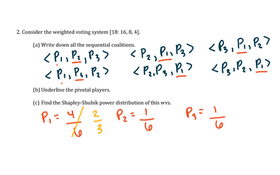 2. Consider the weighted voting system [18: 16, 8, 4].
(a) Write down all the sequential coalitions.
< P1, P2, P3 > < P2, P1, P3 > < P3, P1, P2 >
< P1, P3, P2 > < P2, P3, P1 > < P3, P2, P1 >
(b) Underline the pivotal players.
(c) Find the Shapley-Shubik power distribution of this wvs.
P1 = 4/6 2/3 P2 = 1/6 P3 = 1/6